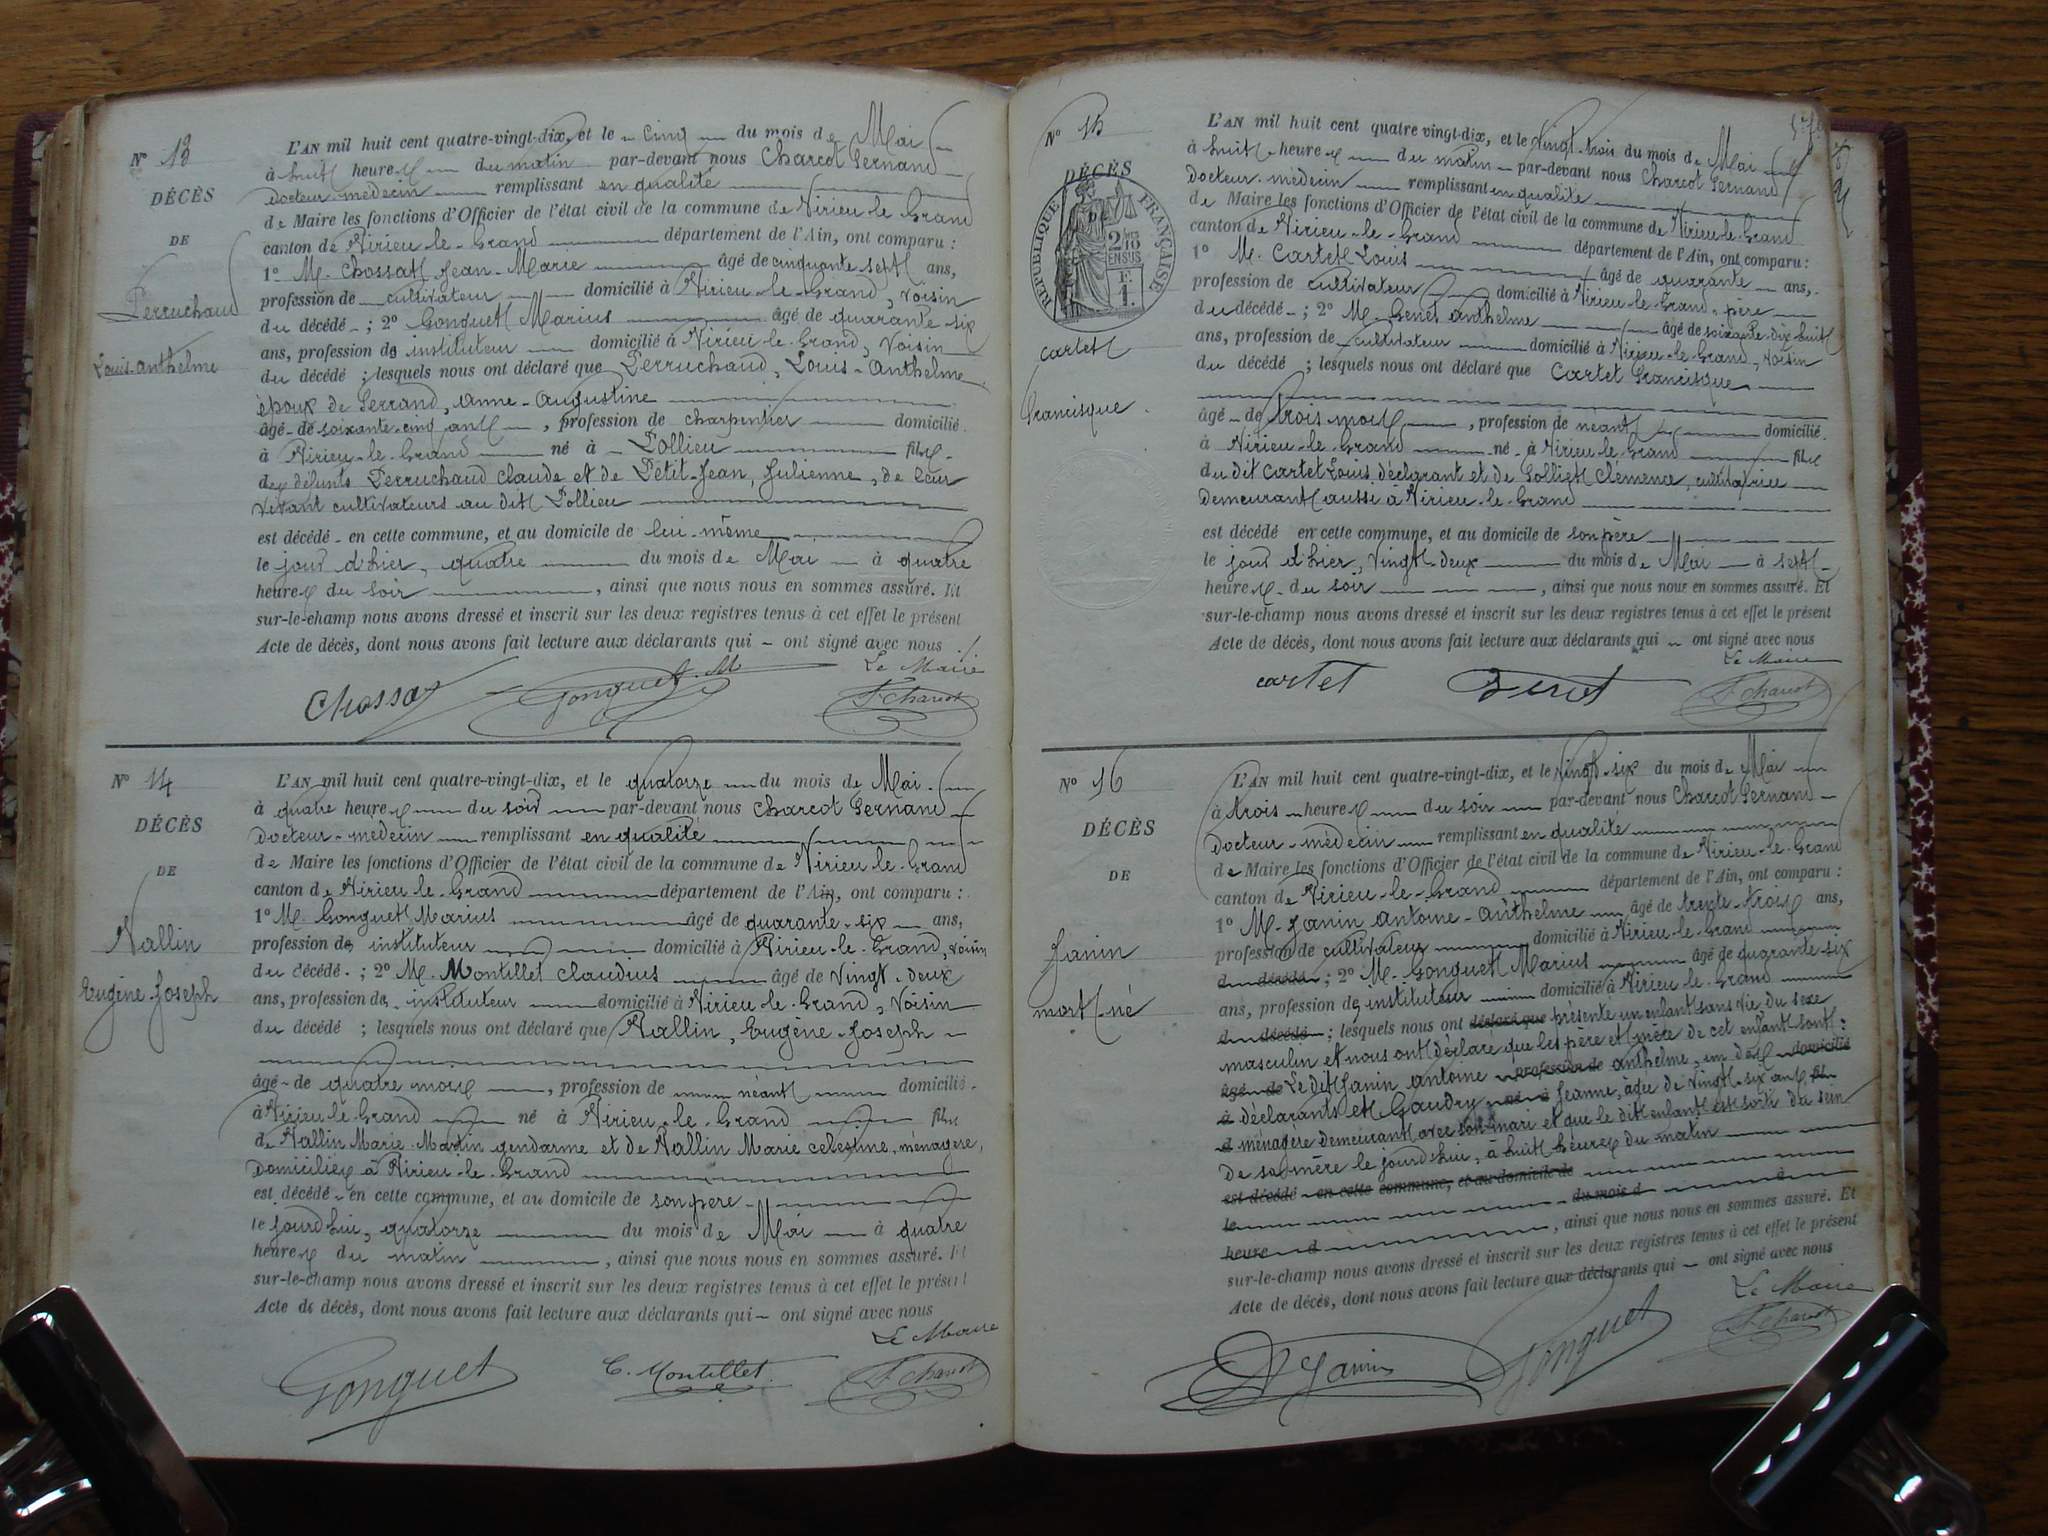 N° 13
DÉCÈS
DE
Perruchaud
Louis-Anthelme
L'AN mil huit cent quatre-vingt-dix, et le cinq du mois de Mai
à huit heures du matin par-devant nous Charcot Fernand
Docteur-médecin remplissant en qualité
de Maire les fonctions d'Officier de l'état civil de la commune de Virieu-le-Grand
canton de Virieu-le-Grand département de l'Ain, ont comparu :
1° M. Chossat Jean-Marie âgé de cinquante sept ans,
profession de cultivateur domicilié à Virieu-le-Grand, voisin
du décédé ; 2° Gonguet Marius âgé de quarante-six
ans, profession de instituteur domicilié à Virieu-le-Grand, voisin
du décédé ; lesquels nous ont déclaré que Perruchaud, Louis-Anthelme
époux de Ferrand, Anne-Augustine
âgé de soixante-cinq ans, profession de charpentier domicilié
à Virieu-le-Grand né à Pollieu fils
des défunts Perruchaud Claude et de Petit-Jean, Julienne, de leur
vivant cultivateurs au dit Pollieu
est décédé en cette commune, et au domicile de lui-même
le jour d'hier, quatre du mois de Mai à quatre
heures du soir, ainsi que nous nous en sommes assuré. Et
sur-le-champ nous avons dressé et inscrit sur les deux registres tenus à cet effet le présent
Acte de décès, dont nous avons fait lecture aux déclarants qui ont signé avec nous ./.
Le Maire
Chossat Gonguet. M F Charcot
N° 14
DÉCÈS
DE
Nallin
Eugène Joseph
L'AN mil huit cent quatre-vingt-dix, et le quatorze du mois de Mai
à quatre heures du soir par-devant nous Charcot Fernand
Docteur-médecin remplissant en qualité
de Maire les fonctions d'Officier de l'état civil de la commune de Virieu-le-Grand
canton de Virieu-le-Grand département de l'Ain, ont comparu :
1° M. Gonguet Marius âgé de quarante-six ans,
profession de instituteur domicilié à Virieu-le-Grand, voisin
du décédé ; 2° M. Montillet Claudius âgé de vingt-deux
ans, profession de instituteur domicilié à Virieu-le-Grand, voisin
du décédé ; lesquels nous ont déclaré que Nallin, Eugène-Joseph
âgé de quatre mois, profession de néant domicilié
à Virieu-le-Grand né à Virieu-le-Grand fils
de Nallin Marie-Martin gendarme et de Nallin Marie Celestine, ménagère,
domiciliés à Virieu-le-Grand
est décédé en cette commune, et au domicile de son père
le jourd'hui, quatorze du mois de Mai à quatre
heures du matin, ainsi que nous nous en sommes assuré. Et
sur-le-champ nous avons dressé et inscrit sur les deux registres tenus à cet effet le présent
Acte de décès, dont nous avons fait lecture aux déclarants qui ont signé avec nous
Le Maire
Gonguet C. Montillet F Charcot
N° 15
DÉCÈS
RÉPUBLIQUE FRANÇAISE
Cartet
Francisque
L'AN mil huit cent quatre vingt-dix, et le vingt-trois du mois de Mai
à huit heures du matin par-devant nous Charcot Fernand
Docteur-médecin remplissant en qualité
de Maire les fonctions d'Officier de l'état civil de la commune de Virieu-le-Grand
canton de Virieu-le-Grand département de l'Ain, ont comparu :
1° M. Cartet Louis âgé de quarante ans,
profession de cultivateur domicilié à Virieu-le-Grand, père
du décédé ; 2° M. Genet Anthelme âgé de soixante-dix-huit
ans, profession de cultivateur domicilié à Virieu-le-Grand, voisin
du décédé ; lesquels nous ont déclaré que Cartet Francisque
âgé de trois mois, profession de néant domicilié
à Virieu-le-Grand né à Virieu-le-Grand fils
du dit Cartet Louis déclarant et de Golliet Clémence, cultivatrice
demeurant aussi à Virieu-le-Grand
est décédé en cette commune, et au domicile de son père
le jour d'hier, vingt-deux du mois de Mai à sept
heures du soir, ainsi que nous nous en sommes assuré. Et
sur-le-champ nous avons dressé et inscrit sur les deux registres tenus à cet effet le présent
Acte de décès, dont nous avons fait lecture aux déclarants qui ont signé avec nous
Le Maire
cartet F Charcot
N° 16
DÉCÈS
DE
Janin
mort-né
L'AN mil huit cent quatre-vingt-dix, et le vingt-six du mois de Mai
à trois heures du soir par-devant nous Charcot Fernand
Docteur-médecin remplissant en qualité
de Maire les fonctions d'Officier de l'état civil de la commune de Virieu-le-Grand
canton de Virieu-le-Grand département de l'Ain, ont comparu :
1° M. Janin Antoine-Anthelme âgé de trente-trois ans,
profession de cultivateur domicilié à Virieu-le-Grand
d décédé ; 2° M. Gonguet Marius âgé de quarante-six
ans, profession de instituteur domicilié à Virieu-le-Grand
d décédé ; lesquels nous ont déclaré que présenté un enfant sans vie du sexe
masculin et nous ont déclaré que les père et mère de cet enfant sont :
âgé de Le dit Janin Antoine profession de Anthelme, un des domicilié
à déclarants et Gaudry né à Jeanne, âgée de vingt-six ans fil
d ménagère demeurant avec son mari et que le dit enfant est sorti du sein
de sa mère le jourd'hui, à huit heures du matin
est décédé en cette commune, et au domicile de
le du mois d à
heure d, ainsi que nous nous en sommes assuré. Et
sur-le-champ nous avons dressé et inscrit sur les deux registres tenus à cet effet le présent
Acte de décès, dont nous avons fait lecture aux déclarants qui ont signé avec nous
Le Maire
Janin Gonguet F Charcot